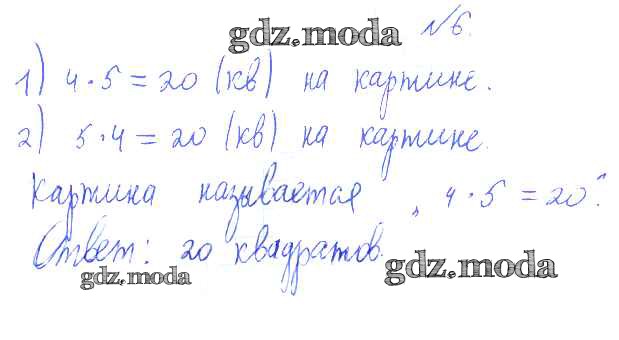 gdz.moda №6.
1) 4·5=20 (кв) на картине.
2) 5·4=20 (кв) на картине.
Картина называется „4·5=20“.
Ответ: 20 квадратов.
gdz.moda gdz.moda